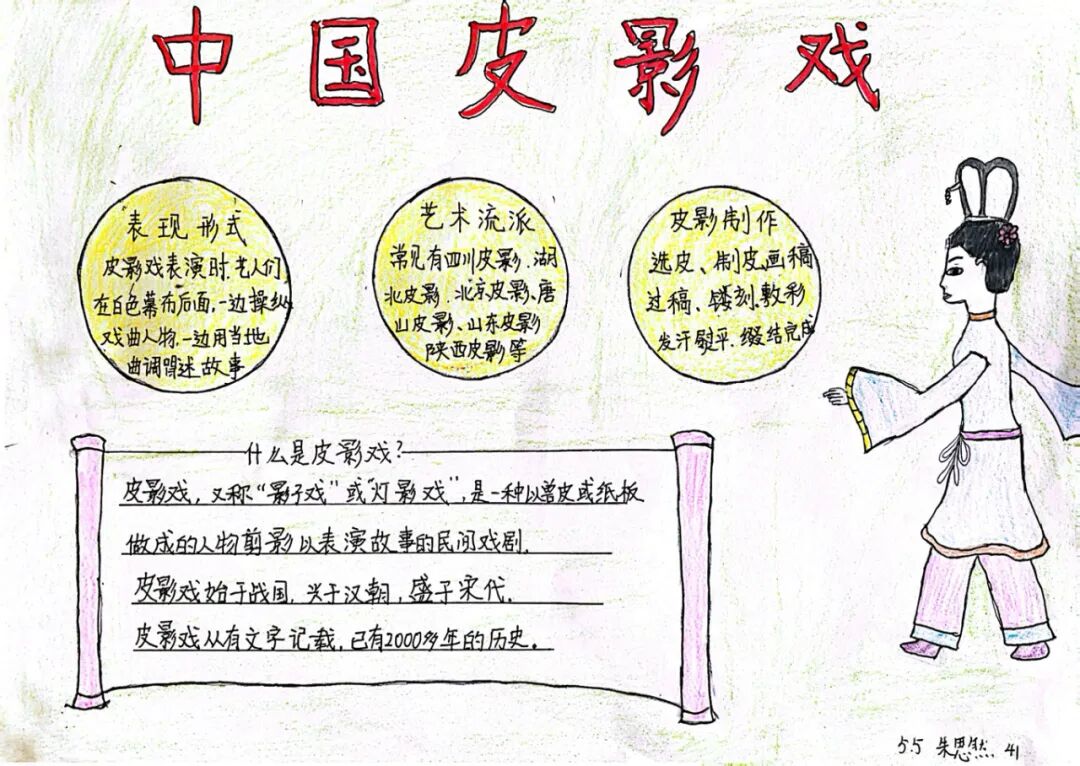 中国皮影戏
表现形式
皮影戏表演时,艺人们
在白色幕布后面,一边操纵
戏曲人物,一边用当地
曲调讲述故事
艺术流派
常见有四川皮影、湖
北皮影、北京皮影、唐
山皮影、山东皮影
陕西皮影等
皮影制作
选皮、制皮画稿
过稿、镂刻敷彩
发汗熨平、缀结完成
什么是皮影戏?
皮影戏,又称“影子戏”或“灯影戏”,是一种以兽皮或纸板
做成的人物剪影以表演故事的民间戏剧.
皮影戏始于战国,兴于汉朝,盛于宋代.
皮影戏从有文字记载,已有2000多年的历史。
5.5 朱思然 41